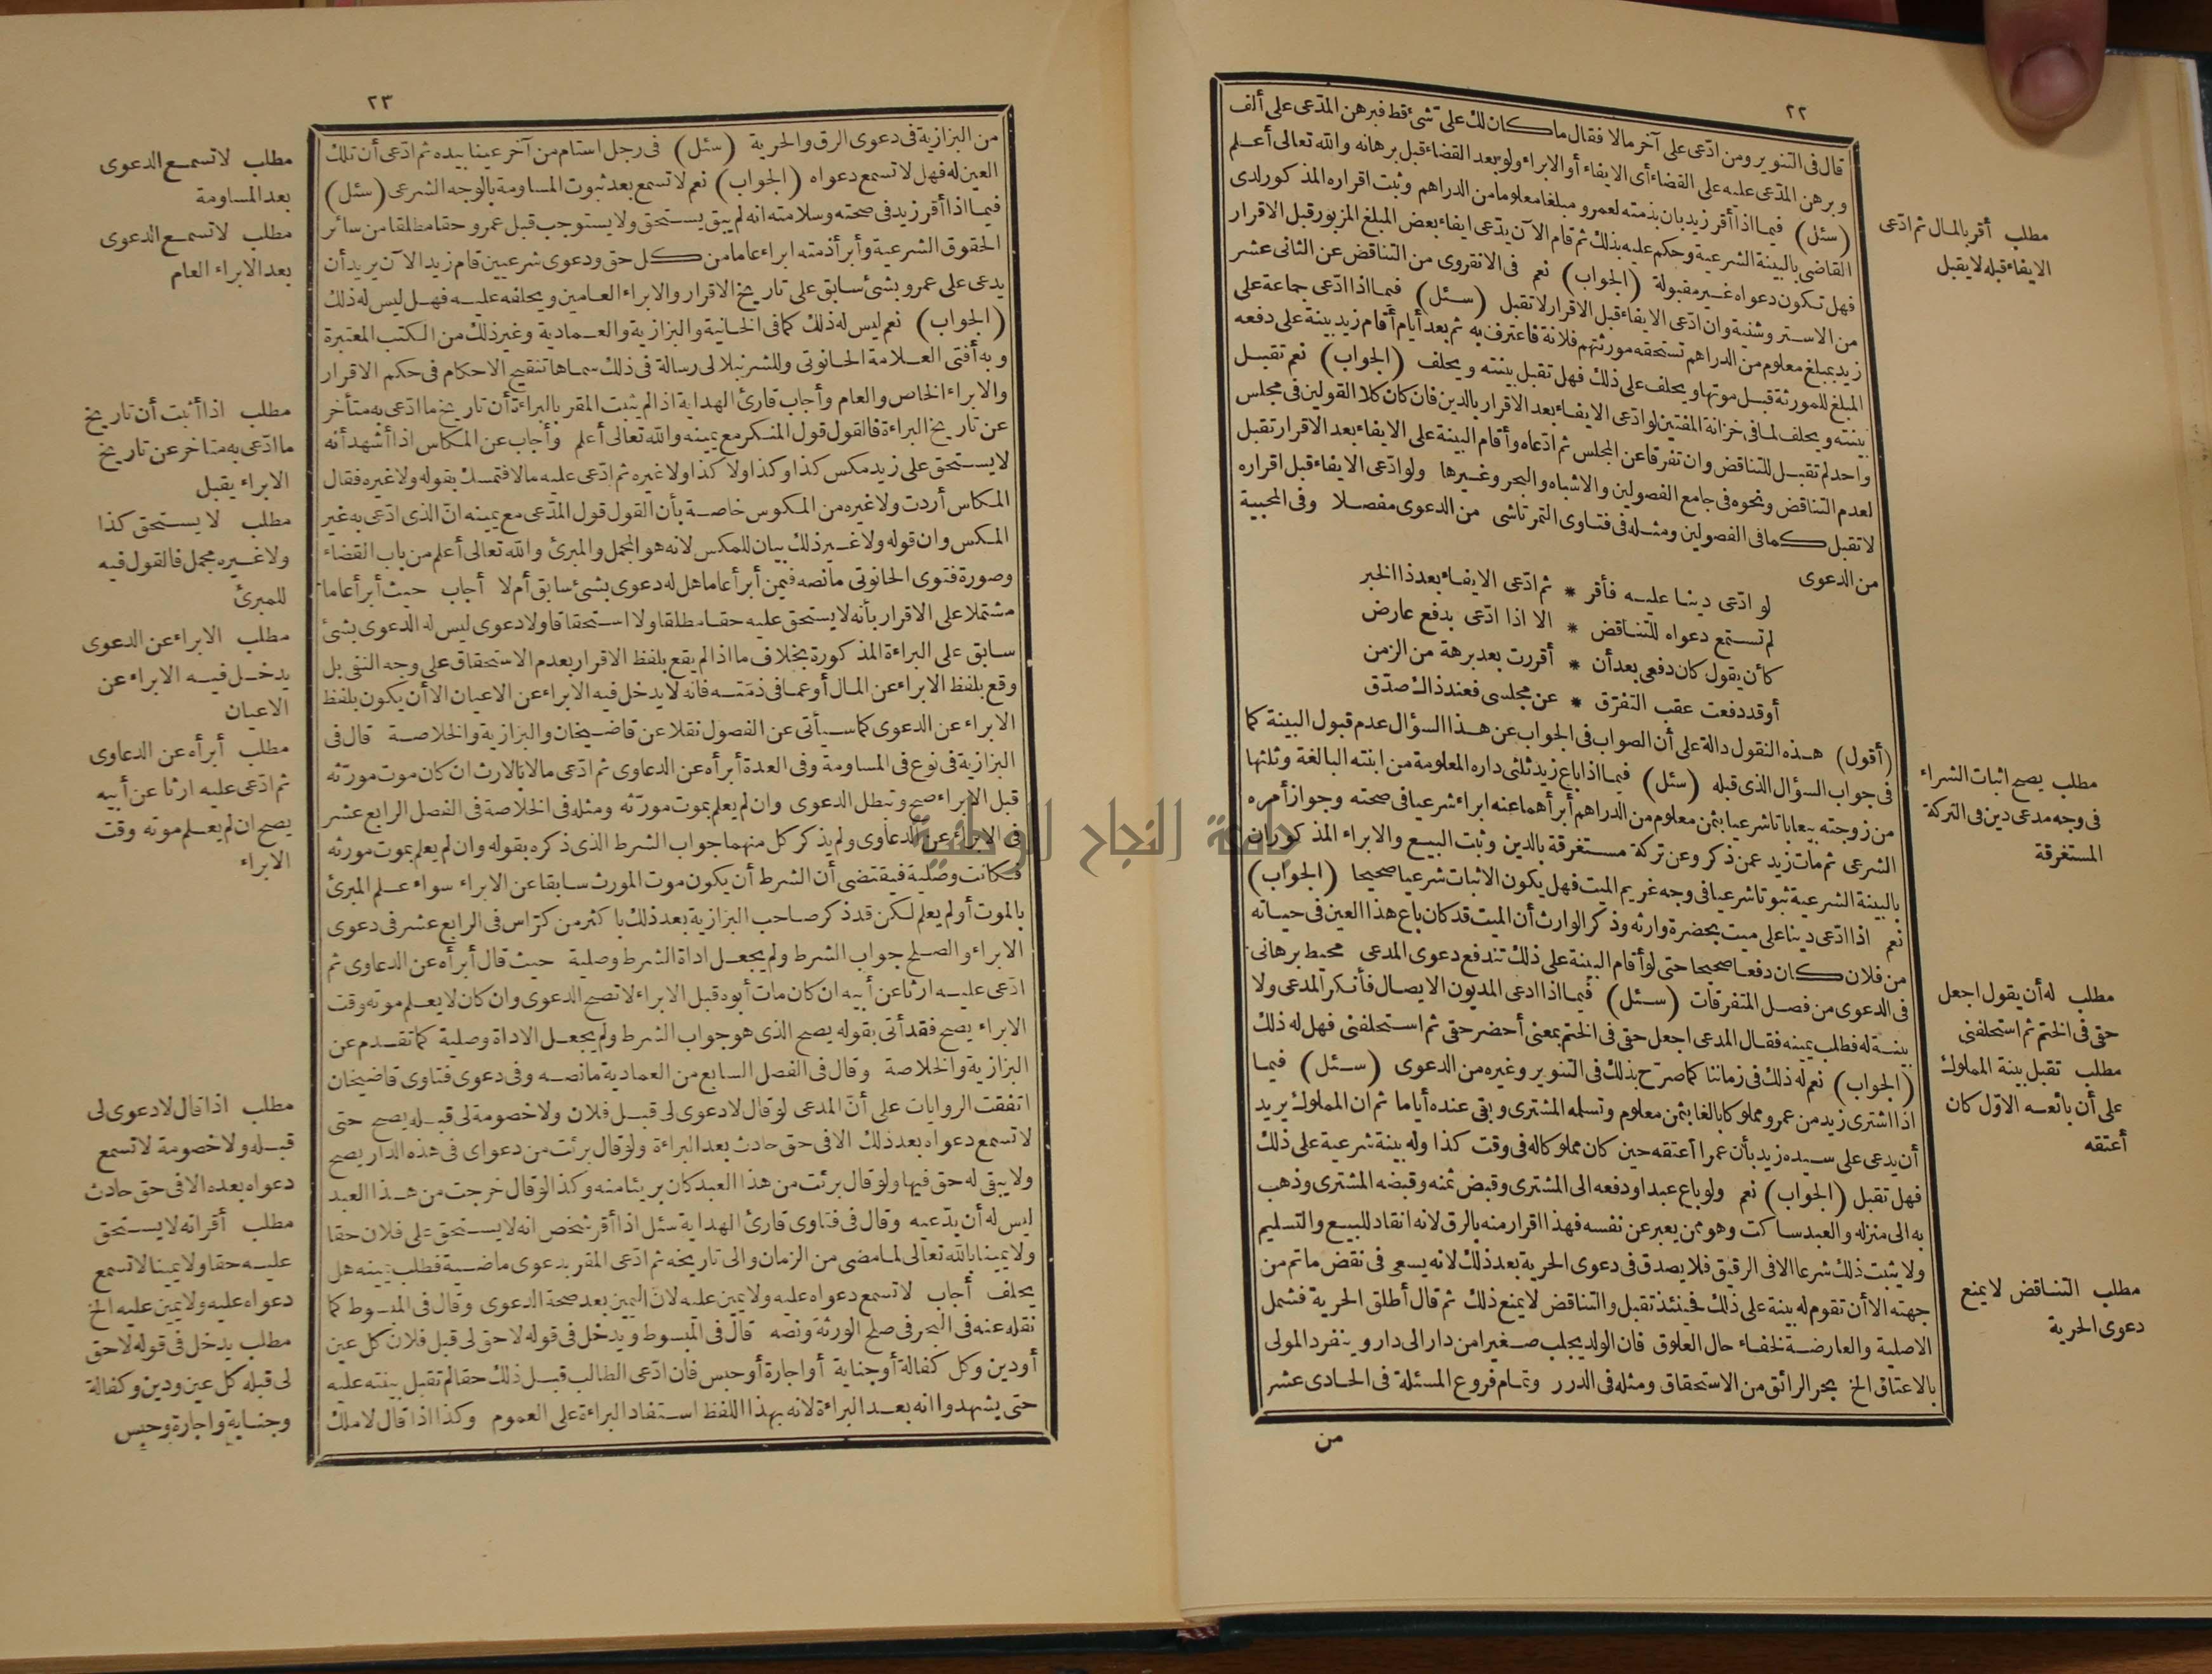 ٢٢
قال فى التنوير ومن ادّعى على آخر مالا فقال ما كان لك علىّ شئ قط فبرهن المدّعى على ألف
وبرهن المدّعى عليه على القضاء أى الايفاء أو الابراء ولو بعد القضاء قبل برهانه والله تعالى أعلم
(سئل) فيما اذا أقر زيد بان بذمته لعمرو مبلغا معلوما من الدراهم وثبت اقراره المذكور لدى
القاضى بالبينة الشرعية وحكم عليه بذلك ثم قام الآن يدّعى ايفاء بعض المبلغ المزبور قبل الاقرار
فهل تكون دعواه غير مقبولة (الجواب) نعم فى الانقروى من التناقض عن الثانى عشر
من الاستروشنية وان ادّعى الايفاء قبل الاقرار لا تقبل (سئل) فيما اذا ادّعى جماعة على
زيد بمبلغ معلوم من الدراهم تستحقه مورثتهم فلانة فاعترف به ثم بعد أيام أقام زيد بينة على دفعه
المبلغ للمورثة قبل موتها ويحلف على ذلك فهل تقبل بينته ويحلف (الجواب) نعم تقبل
بينته ويحلف لما فى خزانة المفتين لو ادّعى الايفاء بعد الاقرار بالدين فان كان كلا القولين فى مجلس
واحد لم تقبل للتناقض وان تفرقا عن المجلس ثم ادّعاه وأقام البينة على الايفاء بعد الاقرار تقبل
لعدم التناقض ونحوه فى جامع الفصولين والاشباه والبحر وغيرها ولو ادّعى الايفاء قبل اقراره
لا تقبل كما فى الفصولين ومثله فى فتاوى التمرتاشى من الدعوى مفصلا وفى المحبية
من الدعوى
لو ادّعى دينا عليه فأقر * ثم ادّعى الايفاء بعد ذا الخبر
لم تستمع دعواه للتناقض * الا اذا ادّعى بدفع عارض
كأن يقول كان دفعى بعد أن * أقررت بعد برهة من الزمن
أو قد دفعت عقب التفرّق * عن مجلسى فعند ذاك صدّق
(أقول) هذه النقول دالة على أن الصواب فى الجواب عن هذا السؤال عدم قبول البينة كما
فى جواب السؤال الذى قبله (سئل) فيما اذا باع زيد ثلثى داره المعلومة من ابنته البالغة وثلثها
من زوجته بيعا باتا شرعيا بثمن معلوم من الدراهم أبرأهما عنه ابراء شرعيا فى صحته وجواز أمره
الشرعى ثم مات زيد عمن ذكر وعن تركة مستغرقة بالدين وثبت البيع والابراء المذكوران
بالبينة الشرعية ثبوتا شرعيا فى وجه غريم الميت فهل يكون الاثبات شرعيا صحيحا (الجواب)
نعم اذا ادّعى دينا على ميت بحضرة وارثه وذكر الوارث أن الميت قد كان باع هذا العين فى حياته
من فلان كان دفعا صحيحا حتى لو أقام البينة على ذلك تندفع دعوى المدعى محيط برهانى
فى الدعوى من فصل المتفرقات (سئل) فيما اذا ادعى المديون الايصال فأنكر المدعى ولا
بينة له فطلب يمينه فقال المدعى اجعل حقى فى الختم بمعنى أحضر حقى ثم استحلفنى فهل له ذلك
(الجواب) نعم له ذلك فى زماننا كما صرّح بذلك فى التنوير وغيره من الدعوى (سئل) فيما
اذا اشترى زيد من عمرو مملوكا بالغا بثمن معلوم وتسلمه المشترى وبقى عنده أياما ثم ان المملوك يريد
أن يدعى على سيده زيد بأن عمرا أعتقه حين كان مملوكا له فى وقت كذا وله بينة شرعية على ذلك
فهل تقبل (الجواب) نعم ولو باع عبدا ودفعه الى المشترى وقبض ثمنه وقبضه المشترى وذهب
به الى منزله والعبد ساكت وهو ممن يعبر عن نفسه فهذا اقرار منه بالرق لانه انقاد للبيع والتسليم
ولا يثبت ذلك شرعا الا فى الرقيق فلا يصدق فى دعوى الحرية بعد ذلك لانه يسعى فى نقض ما تم من
جهته الا أن تقوم له بينة على ذلك فحينئذ تقبل والتناقض لا يمنع ذلك ثم قال أطلق الحرية فشمل
الاصلية والعارضة لخفاء حال العلوق فان الولد يجلب صغيرا من دار الى دار وينفرد المولى
بالاعتاق الخ بحر الرائق من الاستحقاق ومثله فى الدرر وتمام فروع المسئلة فى الحادى عشر
من
مطلب أقر بالمال ثم ادّعى
الايفاء قبله لا يقبل
مطلب يصح اثبات الشراء
فى وجه مدعى دين فى التركة
المستغرقة
مطلب له أن يقول اجعل
حقى فى الختم ثم استحلفنى
مطلب تقبل بينة المملوك
على أن بائعه الاوّل كان
أعتقه
مطلب التناقض لا يمنع
دعوى الحرية
٢٣
من البزازية فى دعوى الرق والحرية (سئل) فى رجل استام من آخر عينا بيده ثم ادّعى أن تلك
العين له فهل لا تسمع دعواه (الجواب) نعم لا تسمع بعد ثبوت المساومة بالوجه الشرعى (سئل)
فيما اذا أقر زيد فى صحته وسلامته انه لم يبق يستحق ولا يستوجب قبل عمرو حقا مطلقا من سائر
الحقوق الشرعية وأبرأ ذمته ابراء عاما من كل حق ودعوى شرعيين قام زيد الآن يريد أن
يدعى على عمرو بشئ سابق على تاريخ الاقرار والابراء العامين ويحلفه عليه فهل ليس له ذلك
(الجواب) نعم ليس له ذلك كما فى الخانية والبزازية والعمادية وغير ذلك من الكتب المعتبرة
وبه أفتى العلامة الحانوتى وللشرنبلالى رسالة فى ذلك سماها تنقيح الاحكام فى حكم الاقرار
والابراء الخاص والعام وأجاب قارئ الهداية اذا لم يثبت المقر بالبراءة أن تاريخ ما ادّعى به متأخر
عن تاريخ البراءة فالقول قول المنكر مع يمينه والله تعالى أعلم وأجاب عن المكاس اذا أشهد أنه
لا يستحق على زيد مكس كذا وكذا ولا كذا ولا غيره ثم ادّعى عليه مالا فتمسك بقوله ولا غيره فقال
المكاس أردت ولا غيره من المكوس خاصة بأن القول قول المدّعى مع يمينه انّ الذى ادّعى به غير
المكس وان قوله ولا غير ذلك بيان للمكس لانه هو المجمل والمبرئ والله تعالى أعلم من باب القضاء
وصورة فتوى الحانوتى ما نصه فيمن أبرأ عاما هل له دعوى بشئ سابق أم لا أجاب حيث أبرأ عاما
مشتملا على الاقرار بأنه لا يستحق عليه حقا مطلقا ولا استحقاقا ولا دعوى ليس له الدعوى بشئ
سابق على البراءة المذكورة بخلاف ما اذا لم يقع بلفظ الاقرار بعدم الاستحقاق على وجه النفى بل
وقع بلفظ الابراء عن المال أو عما فى ذمّته فانه لا يدخل فيه الابراء عن الاعيان الا أن يكون بلفظ
الابراء عن الدعوى كما سيأتى عن الفصول نقلا عن قاضيخان والبزازية والخلاصة قال فى
البزازية فى نوع فى المساومة وفى العدة أبرأه عن الدعاوى ثم ادّعى مالا بالارث ان كان موت مورّثه
قبل الابراء صح وتبطل الدعوى وان لم يعلم بموت مورّثه ومثله فى الخلاصة فى الفصل الرابع عشر
فى الابراء عن الدعاوى ولم يذكر كل منهما جواب الشرط الذى ذكره بقوله وان لم يعلم بموت مورثه
فكانت وصلية فيقتضى أن الشرط أن يكون موت المورث سابقا عن الابراء سواء علم المبرئ
بالموت أو لم يعلم لكن قد ذكر صاحب البزازية بعد ذلك باكثر من كرّاس فى الرابع عشر فى دعوى
الابراء والصلح جواب الشرط ولم يجعل اداة الشرط وصلية حيث قال أبرأه عن الدعاوى ثم
ادّعى عليه ارثا عن أبيه ان كان مات أبوه قبل الابراء لا تصح الدعوى وان كان لا يعلم موته وقت
الابراء يصح فقد أتى بقوله يصح الذى هو جواب الشرط ولم يجعل الاداة وصلية كما تقدم عن
البزازية والخلاصة وقال فى الفصل السابع من العمادية ما نصه وفى دعوى فتاوى قاضيخان
اتفقت الروايات على أنّ المدعى لو قال لا دعوى لى قبل فلان ولا خصومة لى قبله يصح حتى
لا تسمع دعواه بعد ذلك الا فى حق حادث بعد البراءة ولو قال برئت من دعواى فى هذه الدار يصح
ولا يبقى له حق فيها ولو قال برئت من هذا العبد كان بريئا منه وكذا لو قال خرجت من هذا العبد
ليس له أن يدّعيه وقال فى فتاوى قارئ الهداية سئل اذا أقر شخص انه لا يستحق على فلان حقا
ولا يمينا بالله تعالى لما مضى من الزمان والى تاريخه ثم ادّعى المقر بدعوى ماضية فطلب يمينه هل
يحلف أجاب لا تسمع دعواه عليه ولا يمين عليه لانّ اليمين بعد صحة الدعوى وقال فى المبسوط كما
نقله عنه فى البحر فى صلح الورثة ونصه قال فى المبسوط ويدخل فى قوله لا حق لى قبل فلان كل عين
أو دين وكل كفالة أو جناية أو اجارة أو حبس فان ادّعى الطالب قبل ذلك حقا لم تقبل بينته عليه
حتى يشهدوا انه بعد البراءة لانه بهذا اللفظ استفاد البراءة على العموم وكذا اذا قال لا ملك
مطلب لا تسمع الدعوى
بعد المساومة
مطلب لا تسمع الدعوى
بعد الابراء العام
مطلب اذا أثبت أن تاريخ
ما ادّعى به متاخر عن تاريخ
الابراء يقبل
مطلب لا يستحق كذا
ولا غيره مجمل فالقول فيه
للمبرئ
مطلب الابراء عن الدعوى
يدخل فيه الابراء عن
الاعيان
مطلب أبرأه عن الدعاوى
ثم ادّعى عليه ارثا عن أبيه
يصح ان لم يعلم موته وقت
الابراء
مطلب اذا قال لا دعوى لى
قبله ولا خصومة لا تسمع
دعواه بعده الا فى حق حادث
مطلب أقر انه لا يستحق
عليه حقا ولا يمينا لا تسمع
دعواه عليه ولا يمين عليه الخ
مطلب يدخل فى قوله لا حق
لى قبله كل عين ودين وكفالة
وجناية واجارة وحبس
جامعة النجاح الوطنية